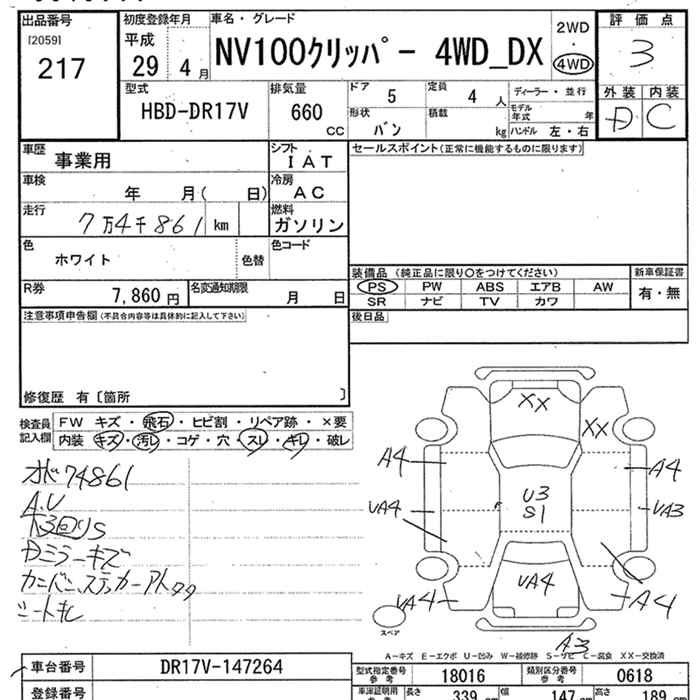 出品番号
[2059]
217
初度登録年月
平成
29 4 月
車名・グレード
NV100クリッパー 4WD_DX
2WD
・
4WD
評価点
3
外装 内装
D C
型式
HBD-DR17V
排気量
660
CC
ドア
5
定員
4 人
ディーラー・並行
形状
バン
積載
kg
モデル年式 年
ハンドル 左・右
車歴
事業用
シフト
IAT
セールスポイント(正常に機能するものに限ります)
車検
年 月( 日)
冷房
AC
走行
7万4千861 km
燃料
ガソリン
色
ホワイト
色替
色コード
装備品 (純正品に限り○をつけてください)
新車保証書
PS PW ABS エアB AW
有・無
SR ナビ TV カワ
R券
7,860 円
名変通知期限
月 日
後日品
注意事項申告欄(不具合内容等は具体的に記入して下さい)
修復歴 有〔箇所 〕
検査員
記入欄
FW キズ・飛石・ヒビ割・リペア跡・×要
内装 キズ・汚レ・コゲ・穴・スレ・キレ・破レ
XX
XX
A4
A4
UA4
U3
S1
UA3
UA4
UA4
A4
スペア
A3
74861
A.U
Dミラーキズ
シートキレ
A-キズ E-エクボ U-凹み W-補修跡 S-サビ C-腐食 XX-交換済
車台番号
DR17V-147264
型式指定番号
参考
18016
類別区分番号
参考
0618
登録番号
車庫証明用
長さ
339 cm
幅
147 cm
高さ
189 cm